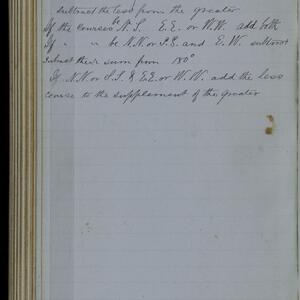 subtract the less from the greater
If the courses be N.S. E.E. or W.W. add both
If " " be N.N. or S.S. and E.W. subtract
subtract their sum from 180°
If N.N. or S.S. & E.E. or W.W. add the less
course to the supplement of the greater